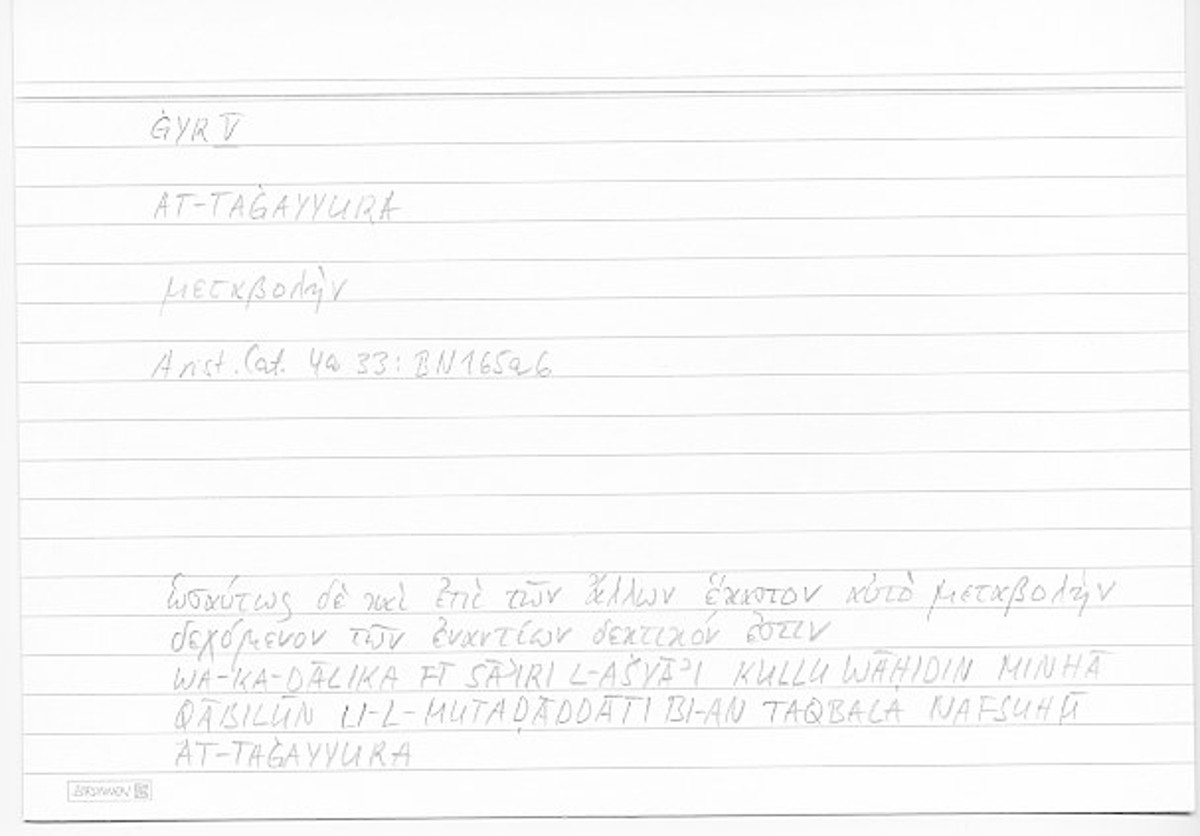 ĠYR V
AT-TAĠAYYURA
μεταβολὴν
Arist. Cat. 4a 33: BN 165a6
ὡσαύτως δὲ καὶ ἐπὶ τῶν ἄλλων ἕκαστον αὐτὸ μεταβολὴν
δεχόμενον τῶν ἐναντίων δεκτικόν ἐστιν
WA-KA-ḎĀLIKA FĪ SĀʾIRI L-AŠYĀʾI KULLU WĀḤIDIN MINHĀ
QĀBILŪN LI-L-MUTAḌĀDDĀTI BI-AN TAQBALA NAFSUHŪ
AT-TAĠAYYURA
BRUNNEN